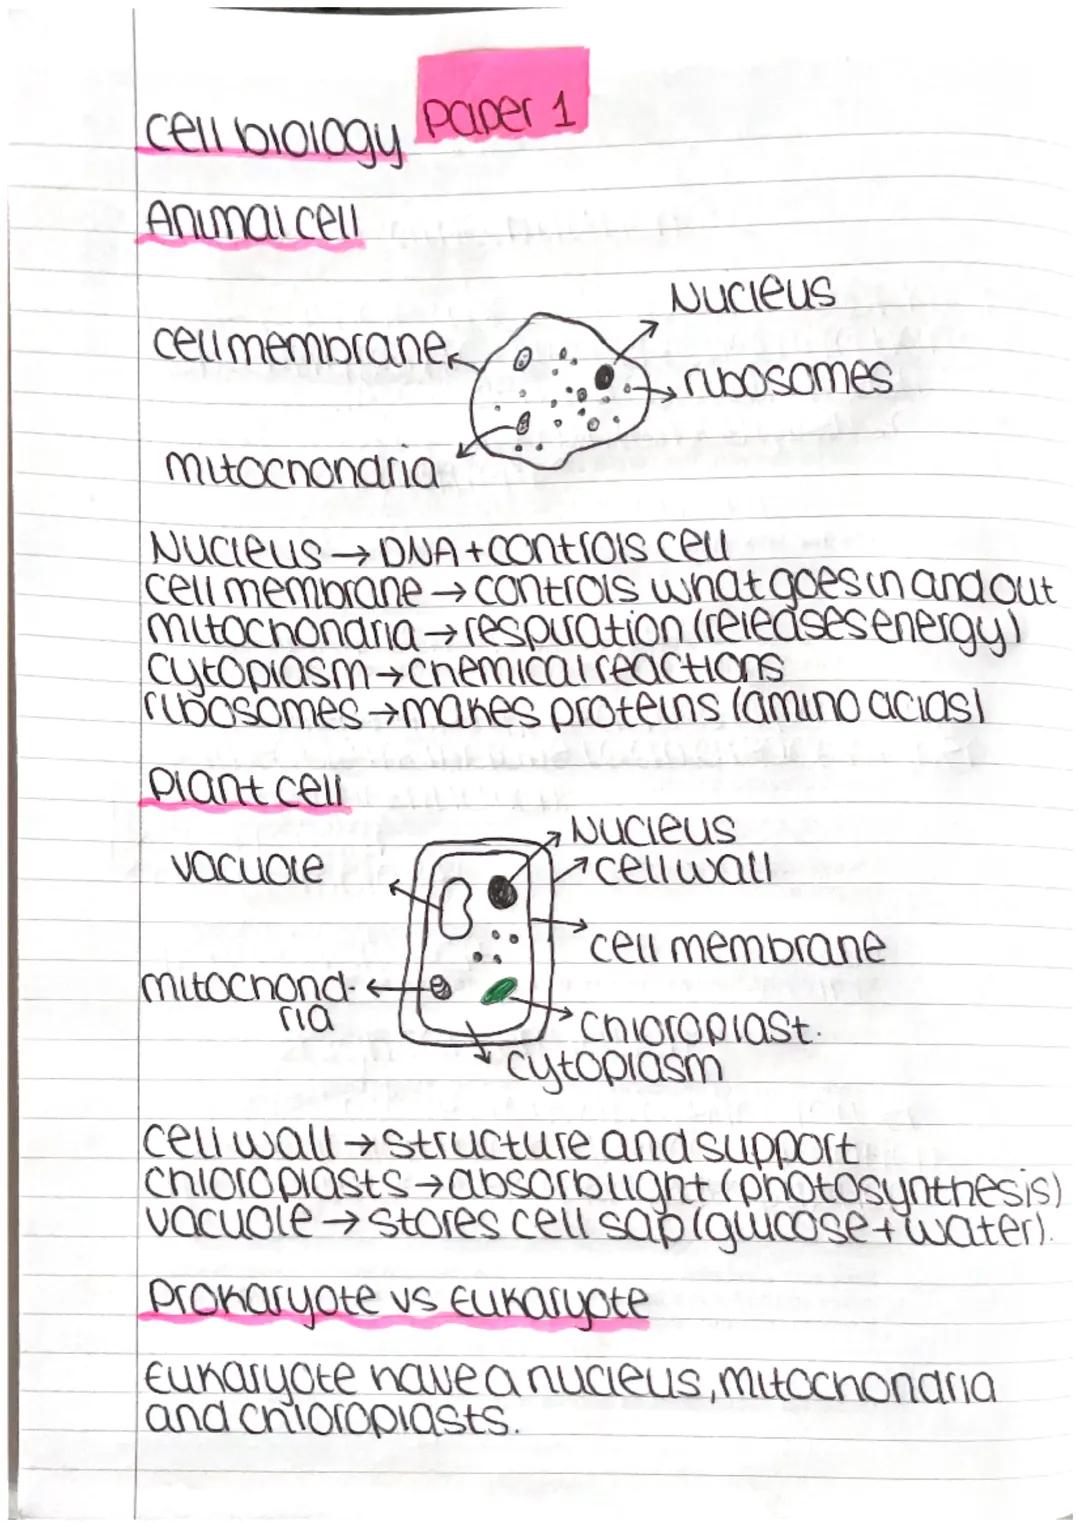 cell biology paper 1
Animal cell
Nucleus
cell membrane
ribosomes
mitochondria
Nucleus → DNA + controls cell
cell membrane → controls what goes in and out
mitochondria → respiration (releases energy)
cytoplasm → chemical reactions
ribosomes → makes proteins (amino acids)
Plant cell
Nucleus
vacuole
cell wall
cell membrane
mitochond-
ria
chloroplast.
cytoplasm
cell wall → structure and support
chloroplasts → absorb light (photosynthesis)
vacuole → stores cell sap (glucose + water).
Prokaryote vs Eukaryote
Eukaryote have a nucleus, mitochondria
and chloroplasts.